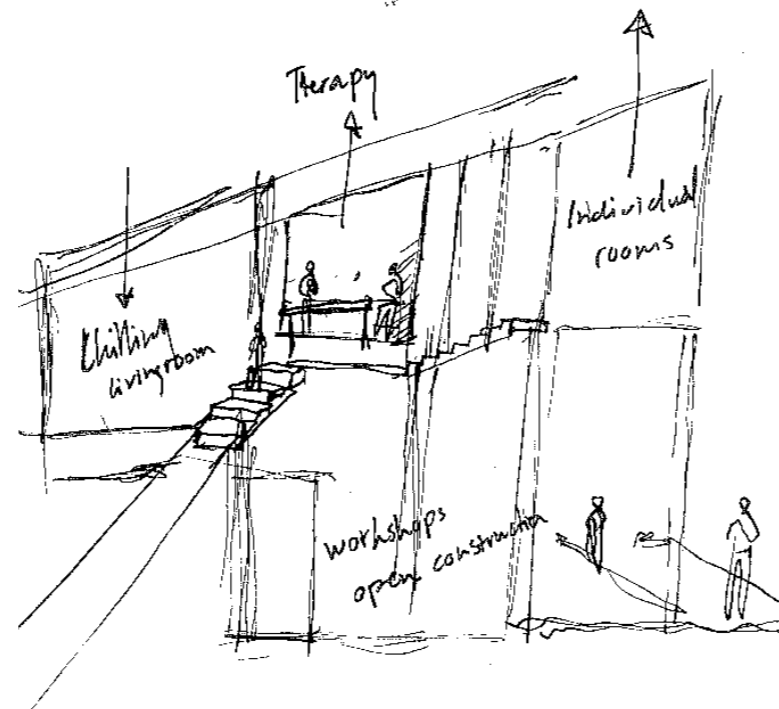 Therapy
Individual
rooms
Chilling
livingroom
workshops
open construction